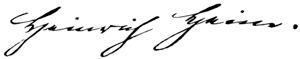 Heinrich Heine.